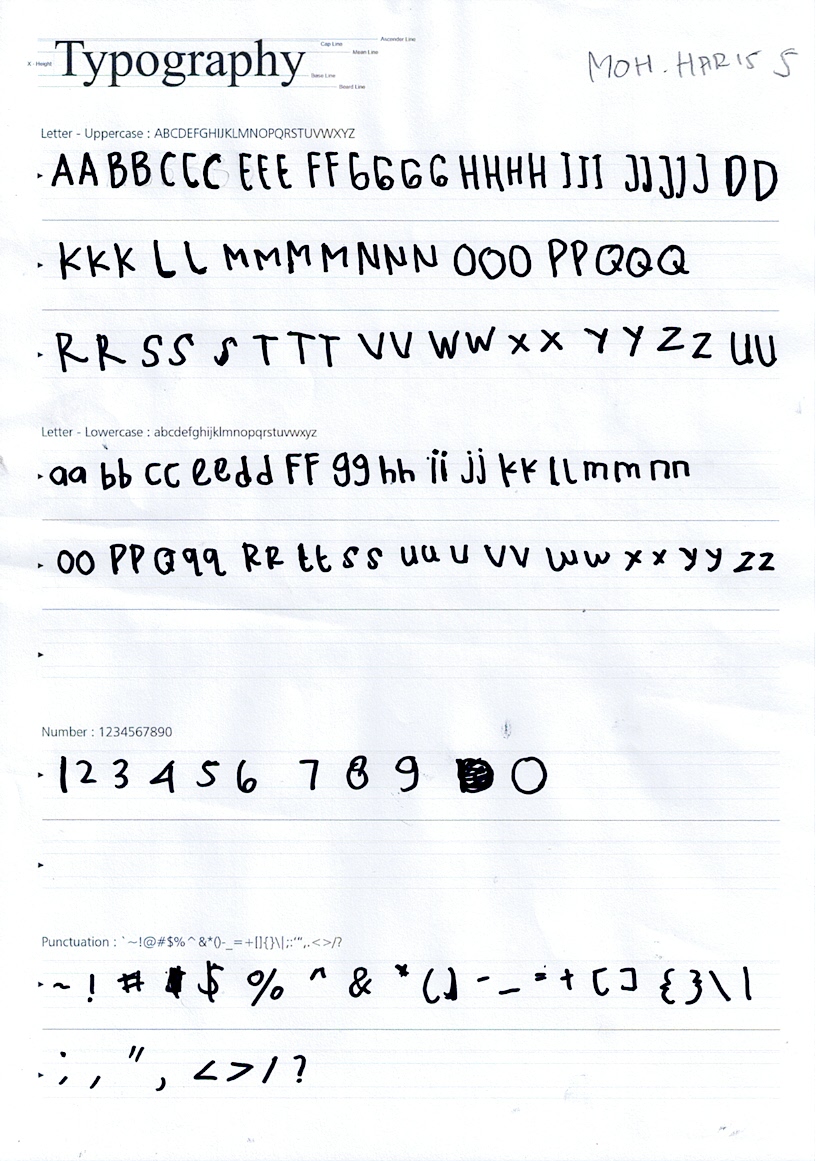 Ascender Line
Cap Line
Mean Line
X - Height
Typography
Base Line
Beard Line
MOH. HARIS S
Letter - Uppercase : ABCDEFGHIJKLMNOPQRSTUVWXYZ
AA BB CCC EEE FF GGGG HHHH III JJJJJ DD
KKK LL MMMM NNN OOO PP QQQ
RR SS S TTT VV WW XX YY ZZ UU
Letter - Lowercase : abcdefghijklmnopqrstuvwxyz
aa bb cc ee dd FF gg hh ii jj kk ll mm nn
oo PP Qqq RR tt ss uuu vv ww xx yy zz
Number : 1234567890
1 2 3 4 5 6 7 8 9 0
Punctuation : `~!@#$%^&*()-_=+[]{}\|;:'",.<>/?
~ ! # $ % ^ & * ( ) - _ = + [ ] { } \ |
; , " , < > / ?